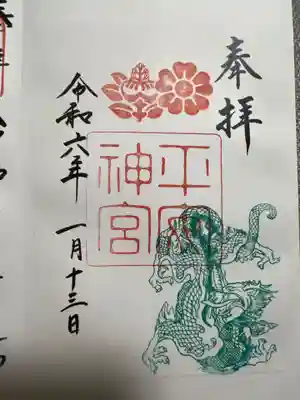 奉拝
平安
神宮
令和六年
一月十三日